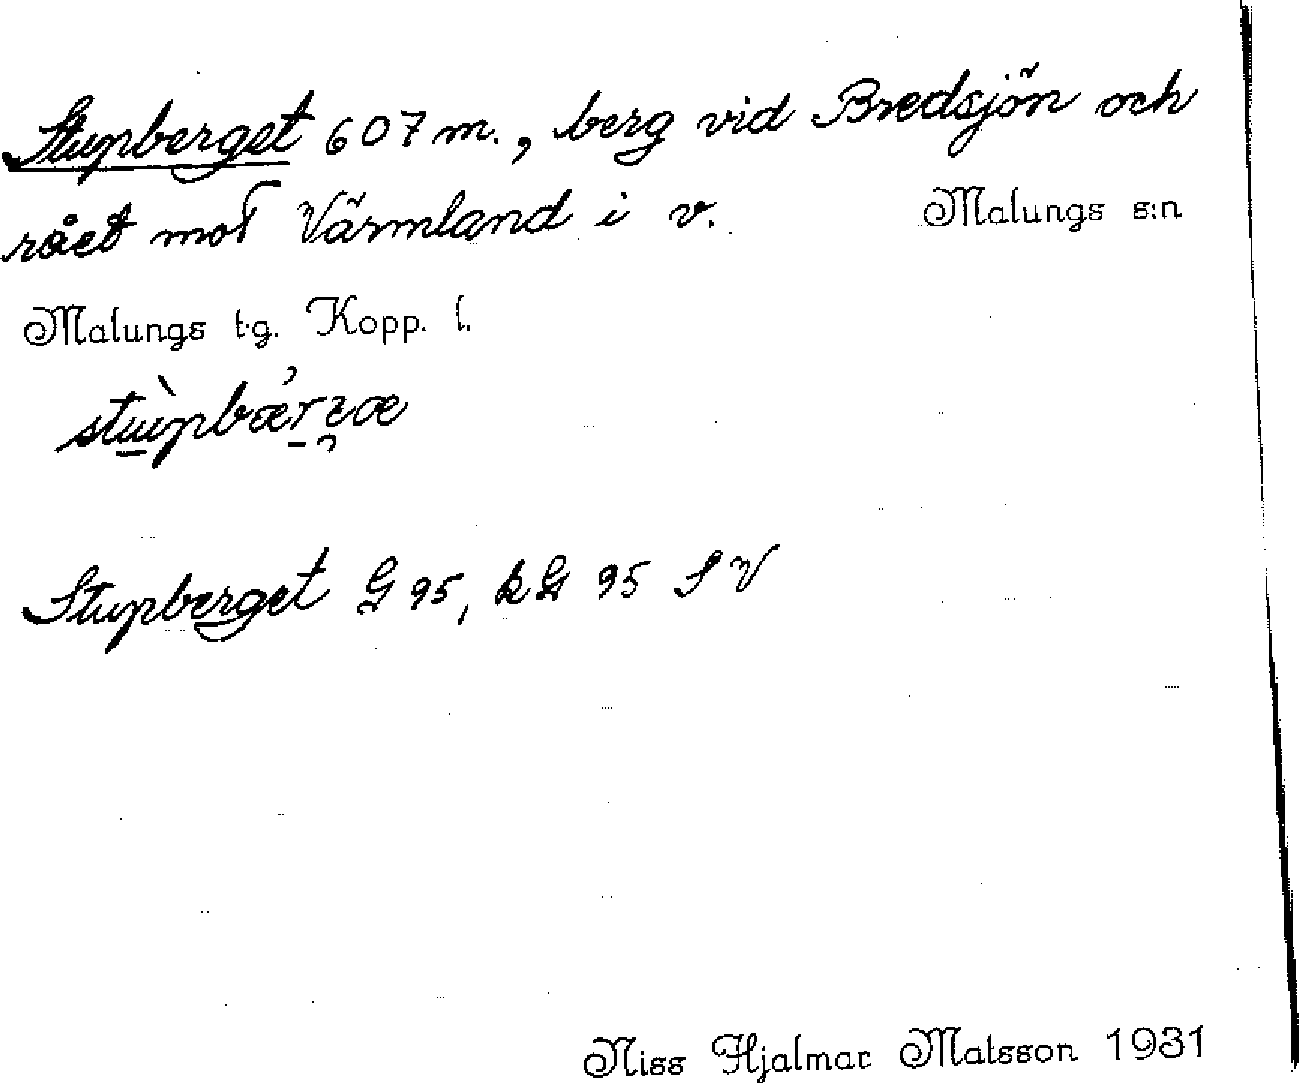 Stupberget 607 m., berg vid Bredsjön och
rået mot Värmland i v. Malungs s:n
Malungs t.g. Kopp. l.
Stupberget G 95, k G 95 S V
Niss Hjalmar Matsson 1931